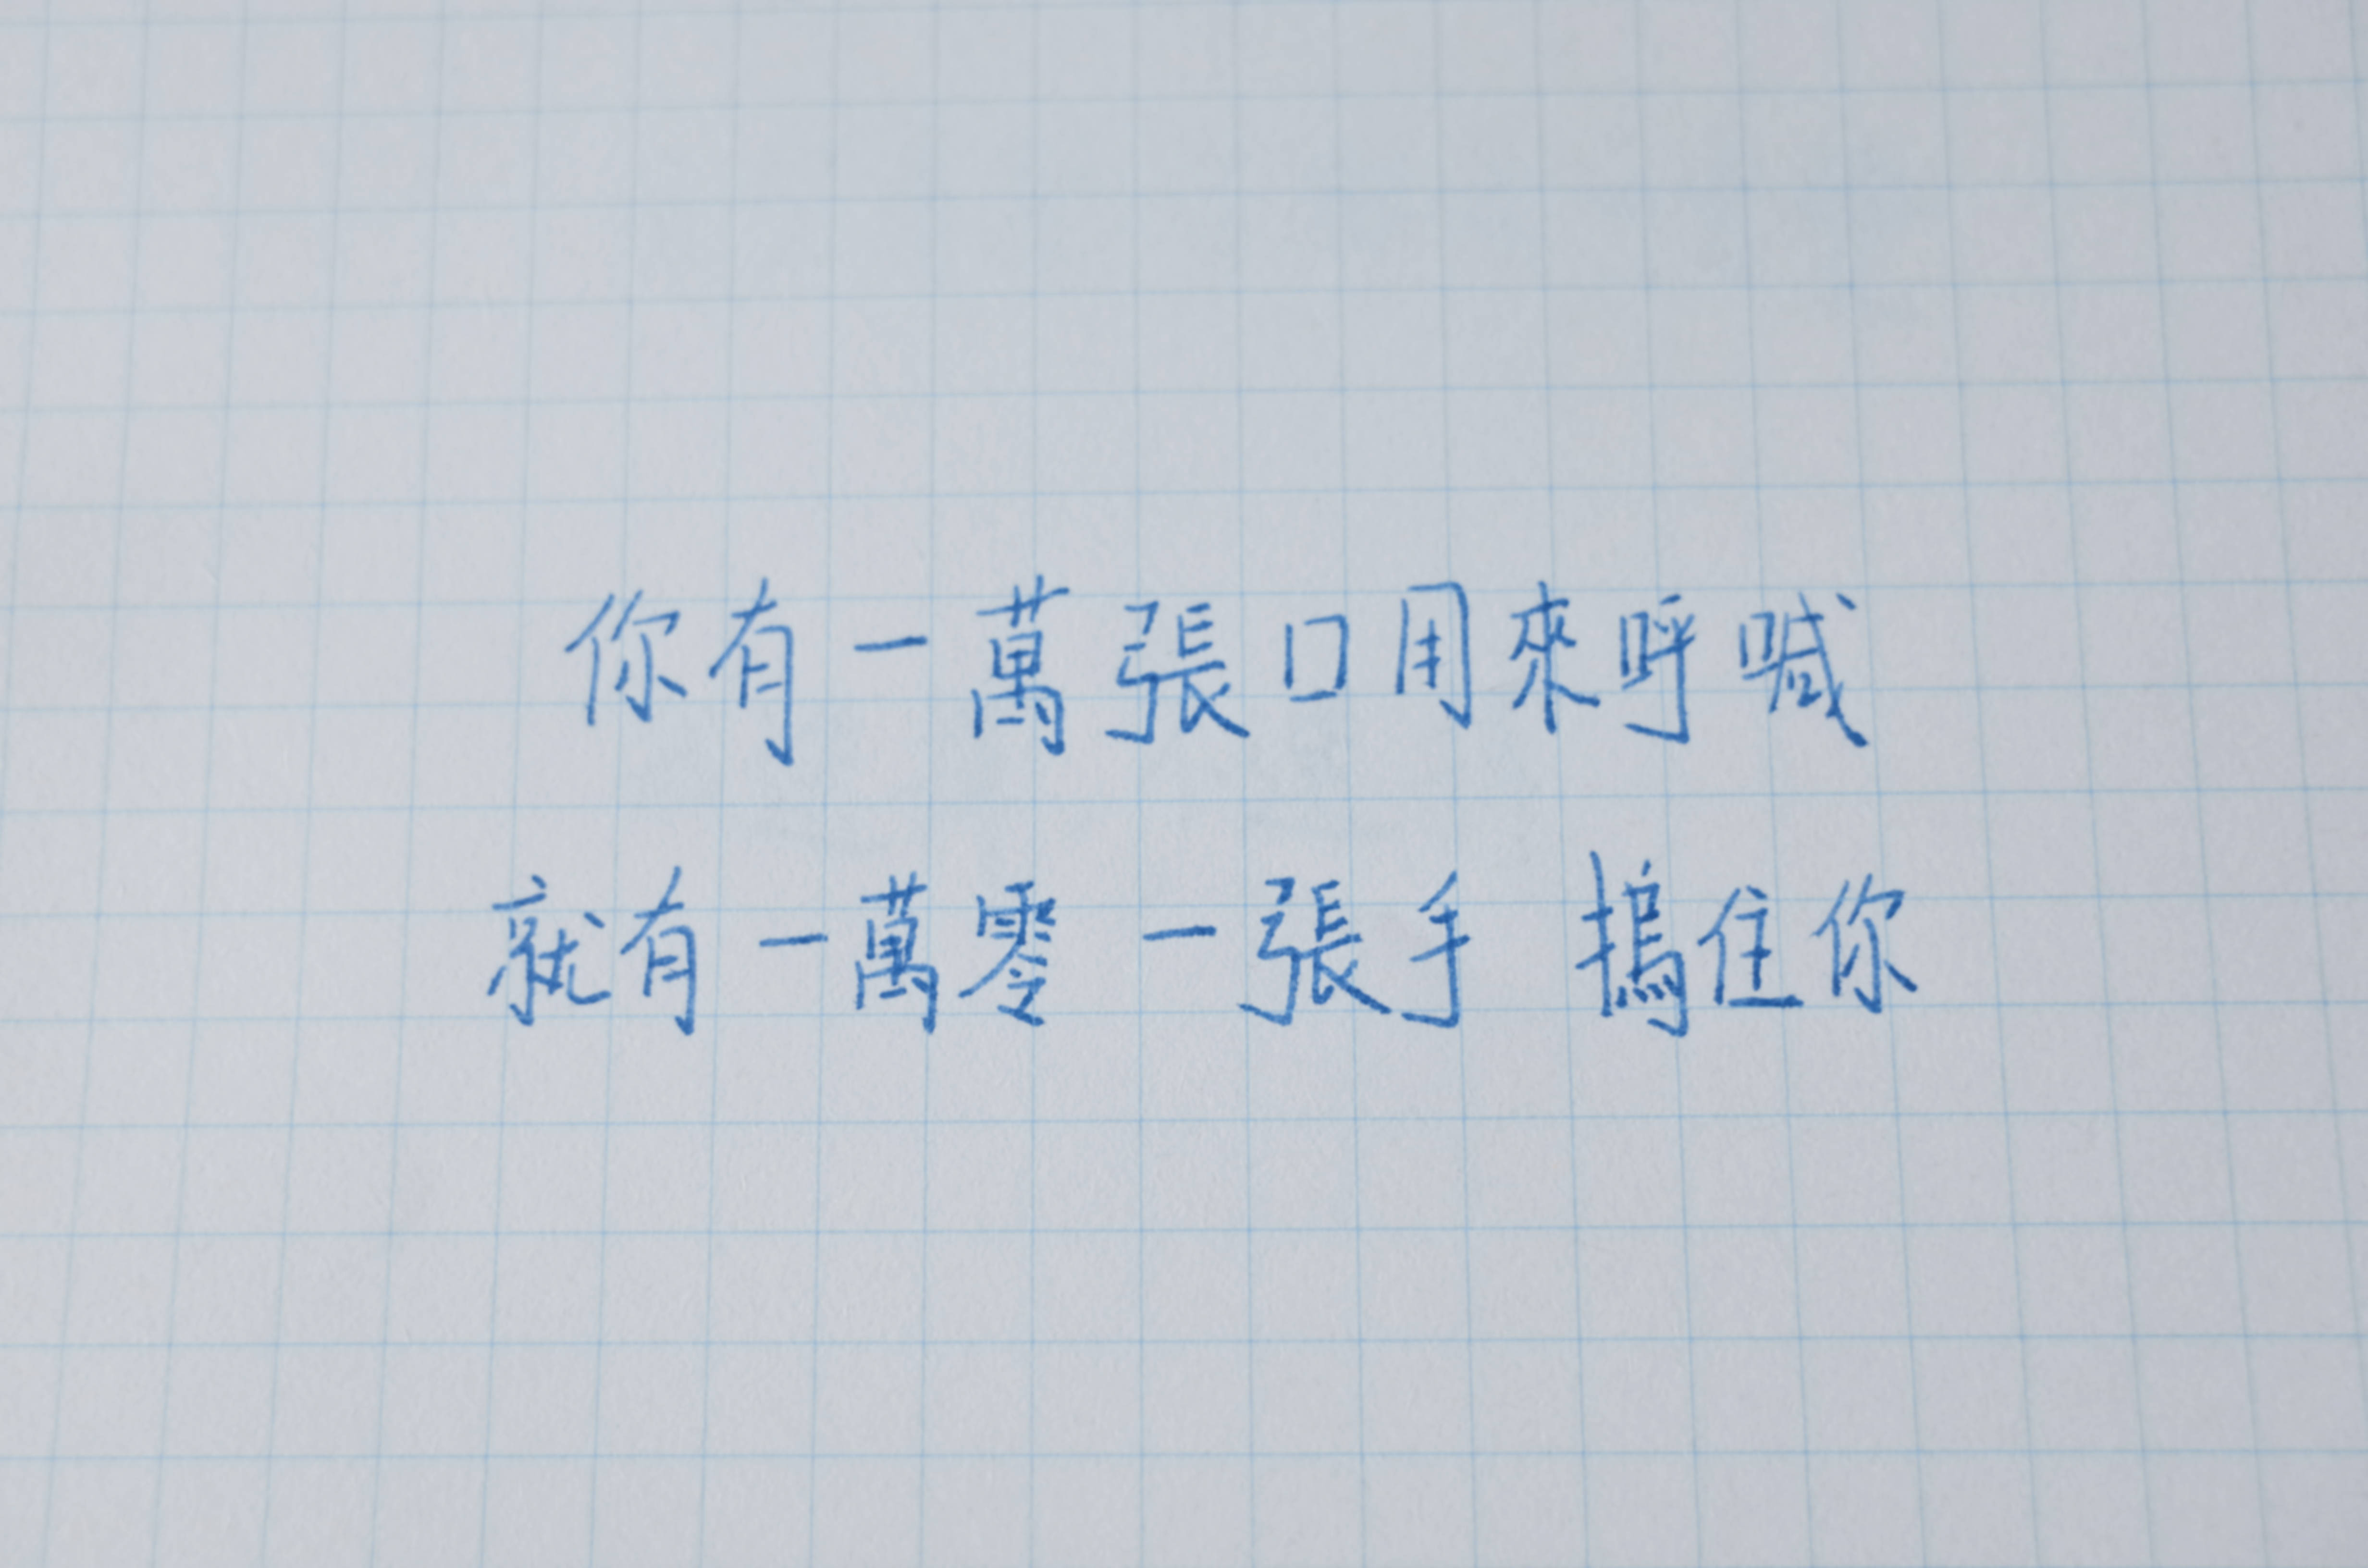 你有一萬張口用來呼喊
就有一萬零一張手 摀住你